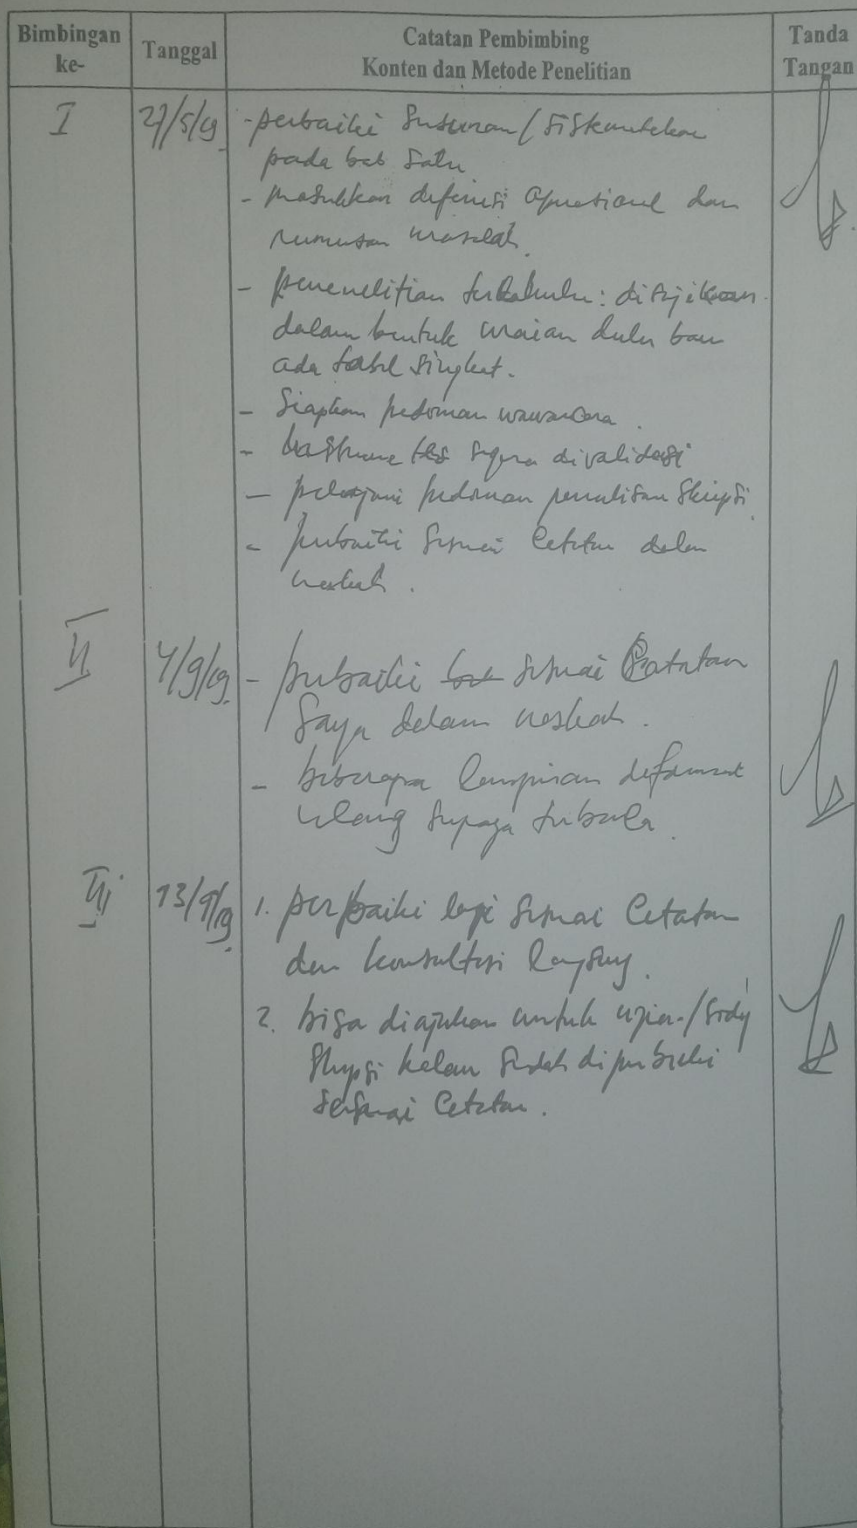 Bimbingan ke-
Tanggal
Catatan Pembimbing
Konten dan Metode Penelitian
Tanda Tangan
I
27/5/19
- perbaiki susunan/
pada bab satu
- masukkan definisi operasional dan
rumusan masalah.
- penenelitian terdahulu: disajikan
dalam bentuk uraian dulu baru
ada tabel singkat.
- Siapkan pedoman wawancara.
- tes segera divalidasi
- pelajari pedoman penulisan skripsi.
- perbaiki sesuai catatan dalam
naskah.
II
4/9/19
- perbaiki sesuai Catatan
saya dalam naskah.
- beberapa lampiran diformat
ulang supaya terbaca.
III
13/9/19
1. perbaiki lagi sesuai catatan
dan konsultasi langsung.
2. bisa diajukan untuk ujian/
skripsi kalau sudah diperbaiki
sesuai catatan.